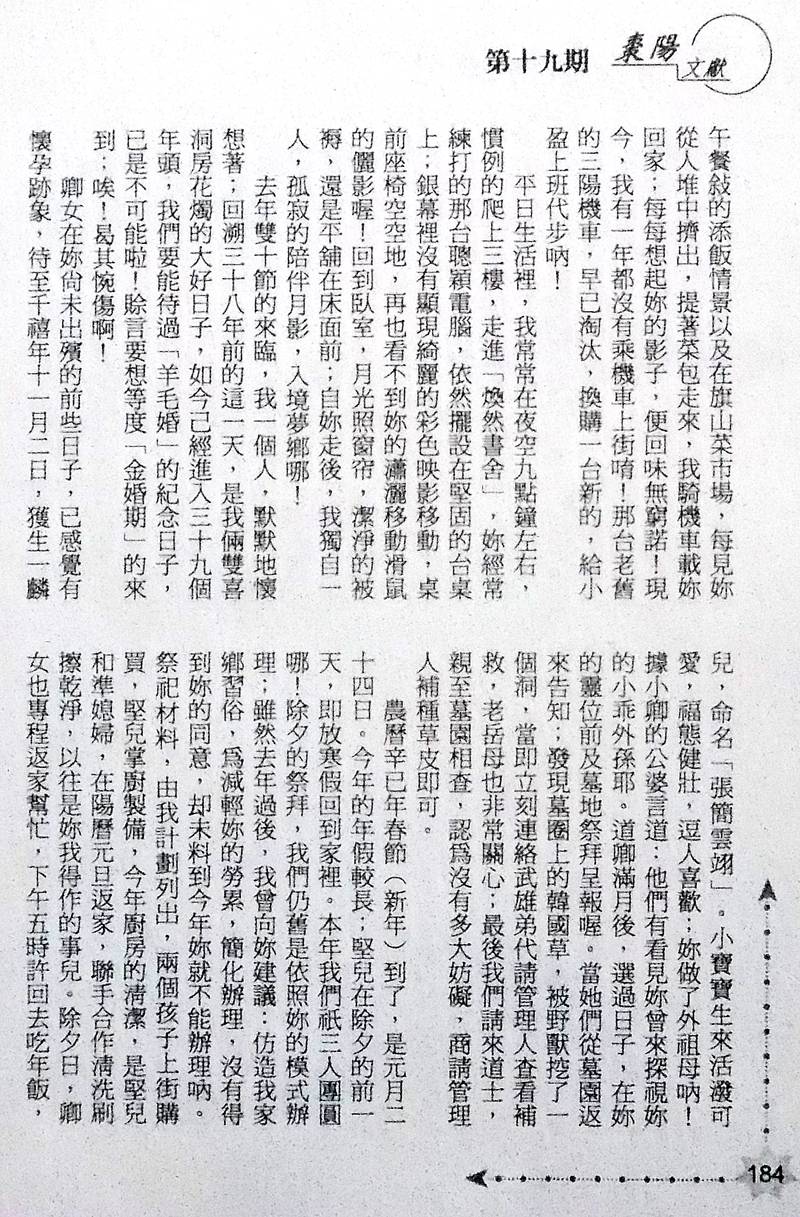 第十九期
棗陽
文獻
午餐敍的添飯情景以及在旗山菜市場，每見妳
從人堆中擠出，提著菜包走來，我騎機車載妳
回家；每每想起妳的影子，便回味無窮諾！現
今，我有一年都沒有乘機車上街唷！那台老舊
的三陽機車，早已淘汰，換購一台新的，給小
盈上班代步吶！
平日生活裡，我常常在夜空九點鐘左右，
慣例的爬上三樓，走進「煥然書舍」，妳經常
練打的那台聰穎電腦，依然擺設在堅固的台桌
上；銀幕裡沒有顯現綺麗的彩色映影移動，桌
前座椅空空地，再也看不到妳的瀟灑移動滑鼠
的儷影喔！回到臥室，月光照窗帘，潔淨的被
褥，還是平舖在床面前；自妳走後，我獨自一
人，孤寂的陪伴月影，入境夢鄉哪！
去年雙十節的來臨，我一個人，默默地懷
想著；回溯三十八年前的這一天，是我倆雙喜
洞房花燭的大好日子，如今己經進入三十九個
年頭，我們要能待過「羊毛婚」的紀念日子，
已是不可能啦！賒言要想等度「金婚期」的來
到；唉！曷其惋傷啊！
卿女在妳尙未出殯的前些日子，已感覺有
懷孕跡象，待至千禧年十一月二日，獲生一麟
兒，命名「張簡雲翊」。小寶寶生來活潑可
愛，福態健壯，逗人喜歡；妳做了外祖母吶！
據小卿的公婆言道：他們有看見妳曾來探視妳
的小乖外孫耶。道卿滿月後，選過日子，在妳
的靈位前及墓地祭拜呈報喔。當她們從墓園返
來告知；發現墓圈上的韓國草，被野獸挖了一
個洞，當即立刻連絡武雄弟代請管理人查看補
救，老岳母也非常關心；最後我們請來道士，
親至墓園相查，認爲沒有多大妨礙，商請管理
人補種草皮即可。
農曆辛已年春節（新年）到了，是元月二
十四日。今年的年假較長；堅兒在除夕的前一
天，即放寒假回到家裡。本年我們祇三人團圓
哪！除夕的祭拜，我們仍舊是依照妳的模式辦
理；雖然去年過後，我曾向妳建議：仿造我家
鄉習俗，爲減輕妳的勞累，簡化辦理，沒有得
到妳的同意，却未料到今年妳就不能辦理吶。
祭祀材料，由我計劃列出，兩個孩子上街購
買，堅兒掌廚製備，今年廚房的清潔，是堅兒
和準媳婦，在陽曆元旦返家，聯手合作清洗刷
擦乾淨，以往是妳我得作的事兒。除夕日，卿
女也專程返家幫忙，下午五時許回去吃年飯，
184